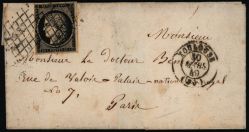 Monsieur
Monsieur le Docteur
TOULOUSE
Rue de Valois - Palais - national
No 7,
Paris